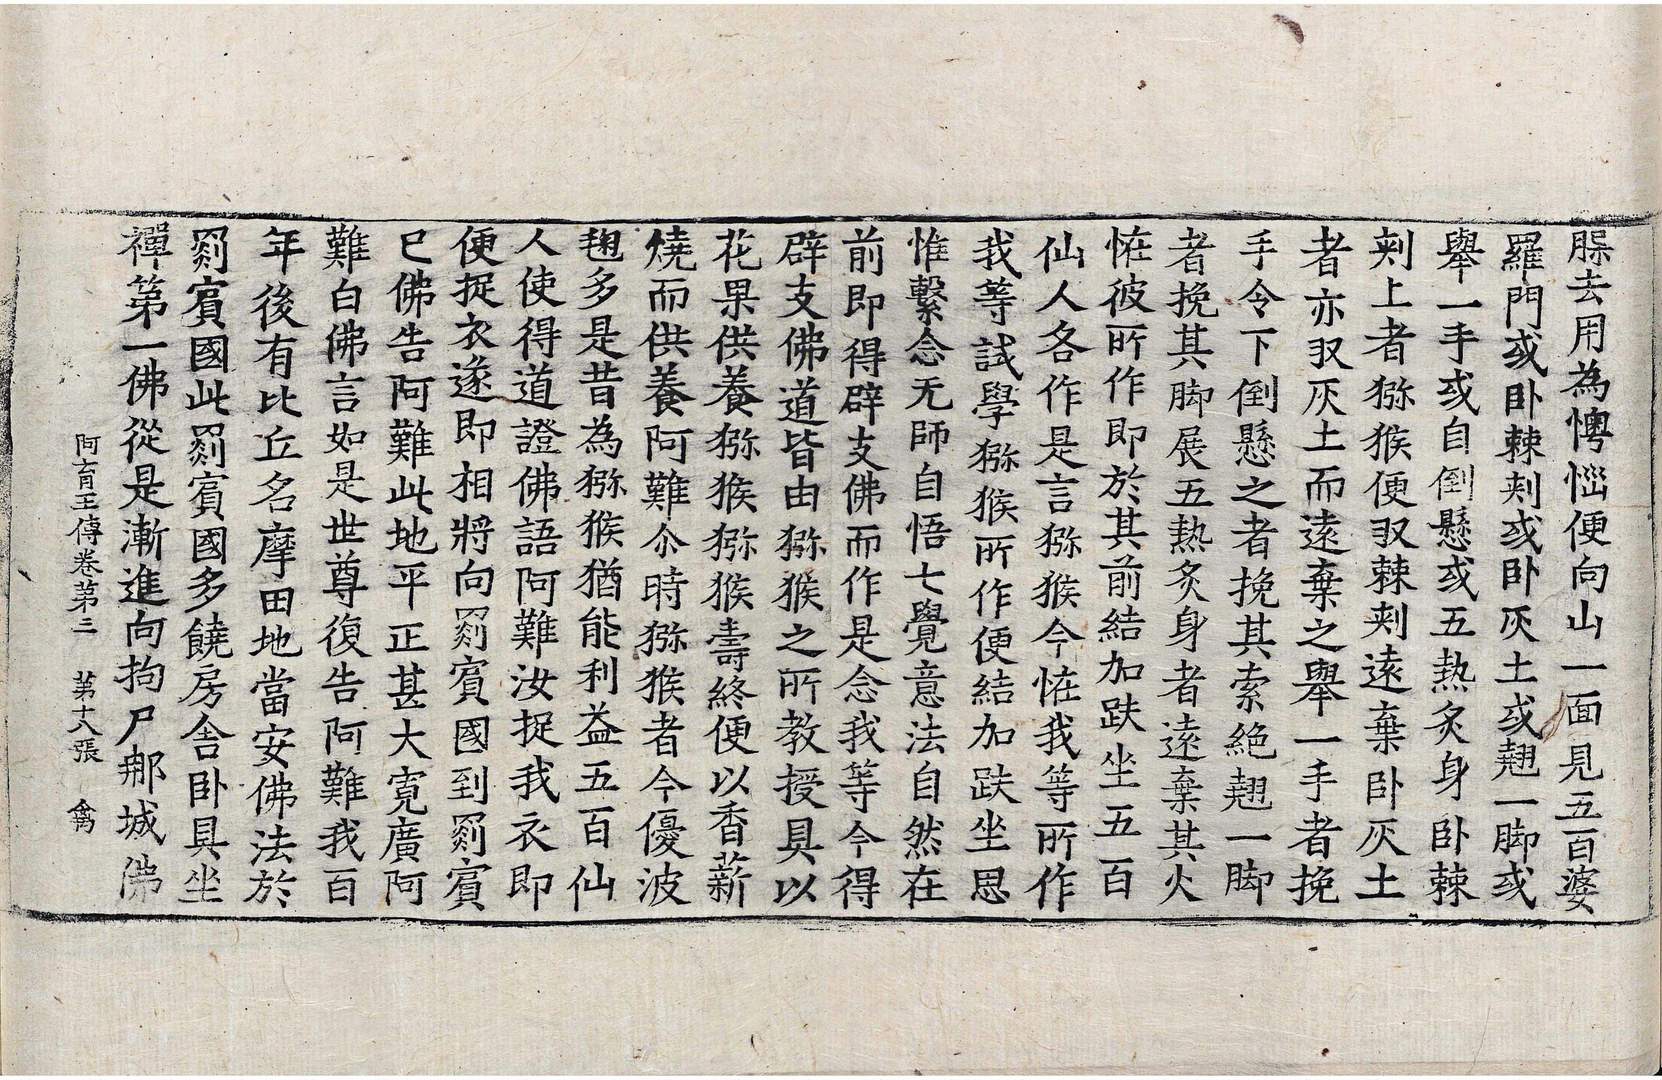 腬去用為懊惱便向山一面見五百婆
羅門或卧棘刾或卧灰土或翹一脚或
舉一手或自倒懸或五熱炙身卧棘
刾上者猕猴便㕝棘刾遠棄卧灰土
者亦㕝灰土而遠棄之舉一手者挽
手令下倒懸之者挽其索絶翹一脚
者挽其脚展五熱炙身者遠棄其火
恠彼所作即於其前結加趺坐五百
仙人各作是言猕猴今恠我等所作
我等試學猕猴所作便結加趺坐思
惟繫念无師自悟七覺意法自然在
前即得辟支佛而作是念我等今得
辟支佛道皆由猕猴之所教授具以
花果供養猕猴猕猴壽終便以香薪
燒而供養阿難尒時猕猴者今優波
毱多是昔為猕猴猶能利益五百仙
人使得道證佛語阿難汝捉我衣即
便捉衣遂即相將向罽賓國到罽賓
已佛告阿難此地平正甚大寬廣阿
難白佛言如是世尊復告阿難我百
年後有比丘名摩田地當安佛法於
罽賓國此罽賓國多饒房舍卧具坐
禪第一佛從是漸進向拘尸那城佛
阿育王傳卷第三　第十八張　禽